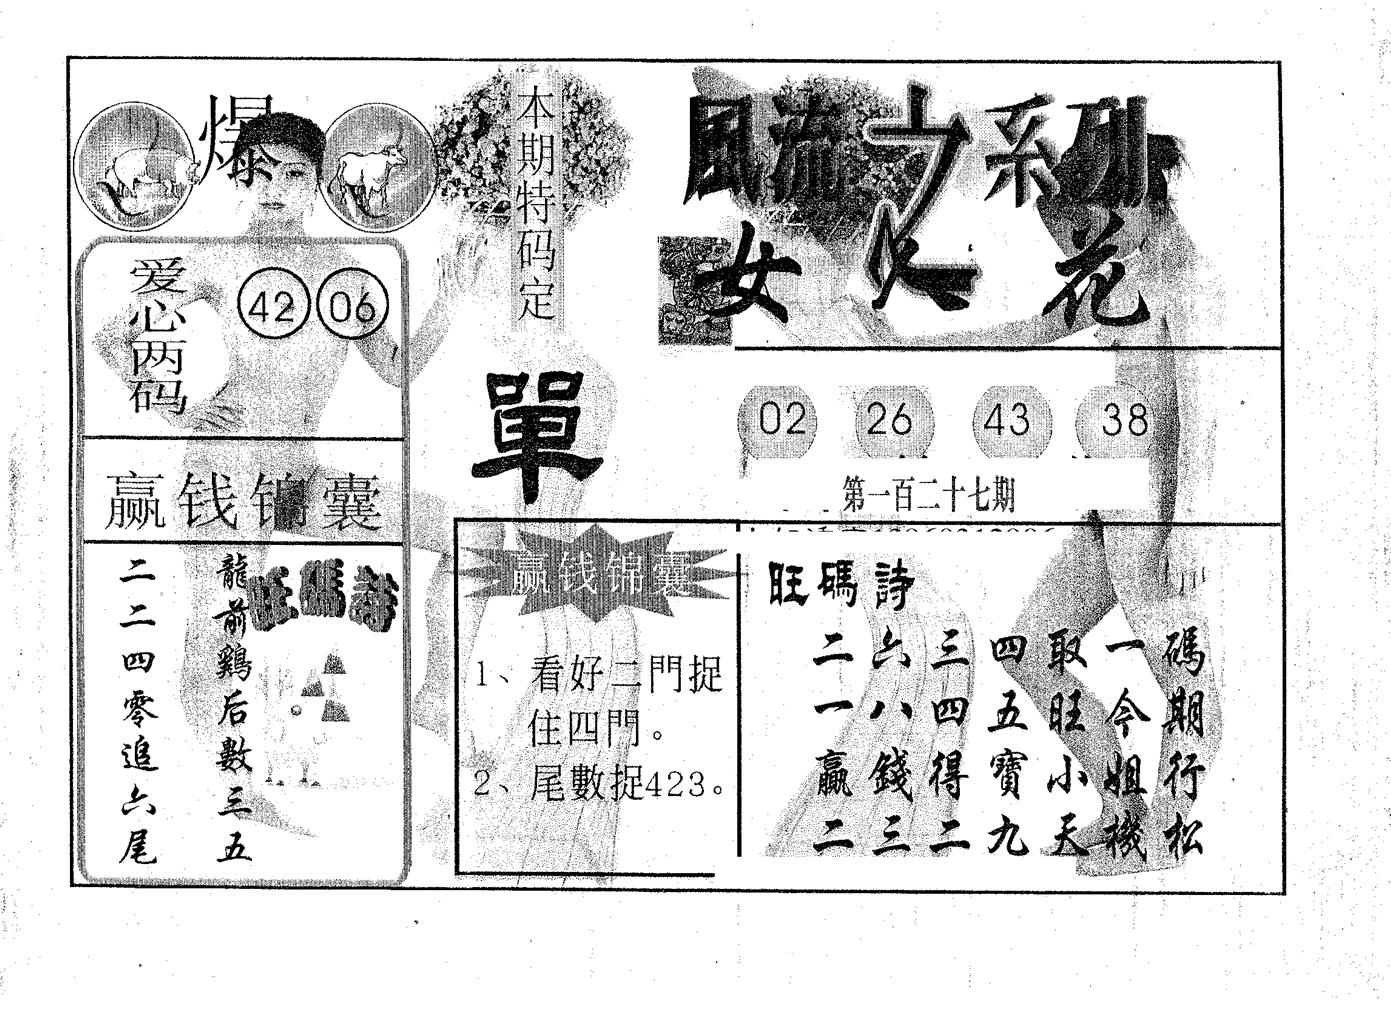 爆
爱心两码
42 06
赢钱锦囊
龍前鷄后數三五
二二四零追六尾
旺碼詩
本期特码定
單
風流之系列
女人花
02 26 43 38
第一百二十七期
赢钱锦囊
1、看好二門捉
住四門。
2、尾數捉423。
旺碼詩
二六三四取一碼
一八四五旺今期
贏錢得寶小姐行
二三二九天機松